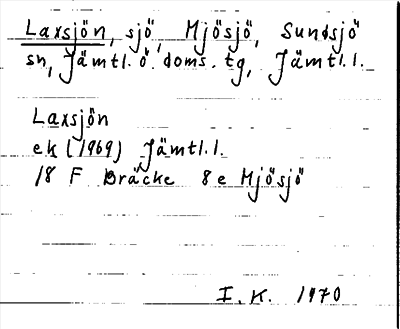 Laxsjön, sjö, Mjösjö, Sundsjö
sn, Jämtl. ö. doms. tg, Jämtl.l.
Laxsjön
ek (1969) Jämtl.l.
18 F Bräcke 8e Mjösjö
I. K. 1970